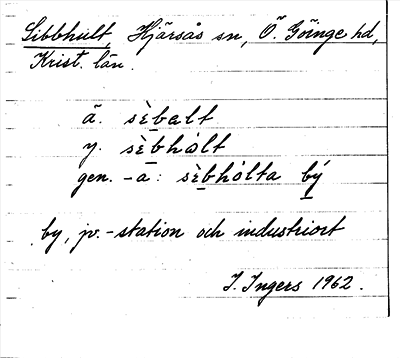 Sibbhult, Hjärsås sn, Ö. Göinge hd,
Krist. län.
ä. sèbalt
y. sèbhålt
gen. -a: sèbhålta bý
by, jv.-station och industriort
I. Ingers 1962.